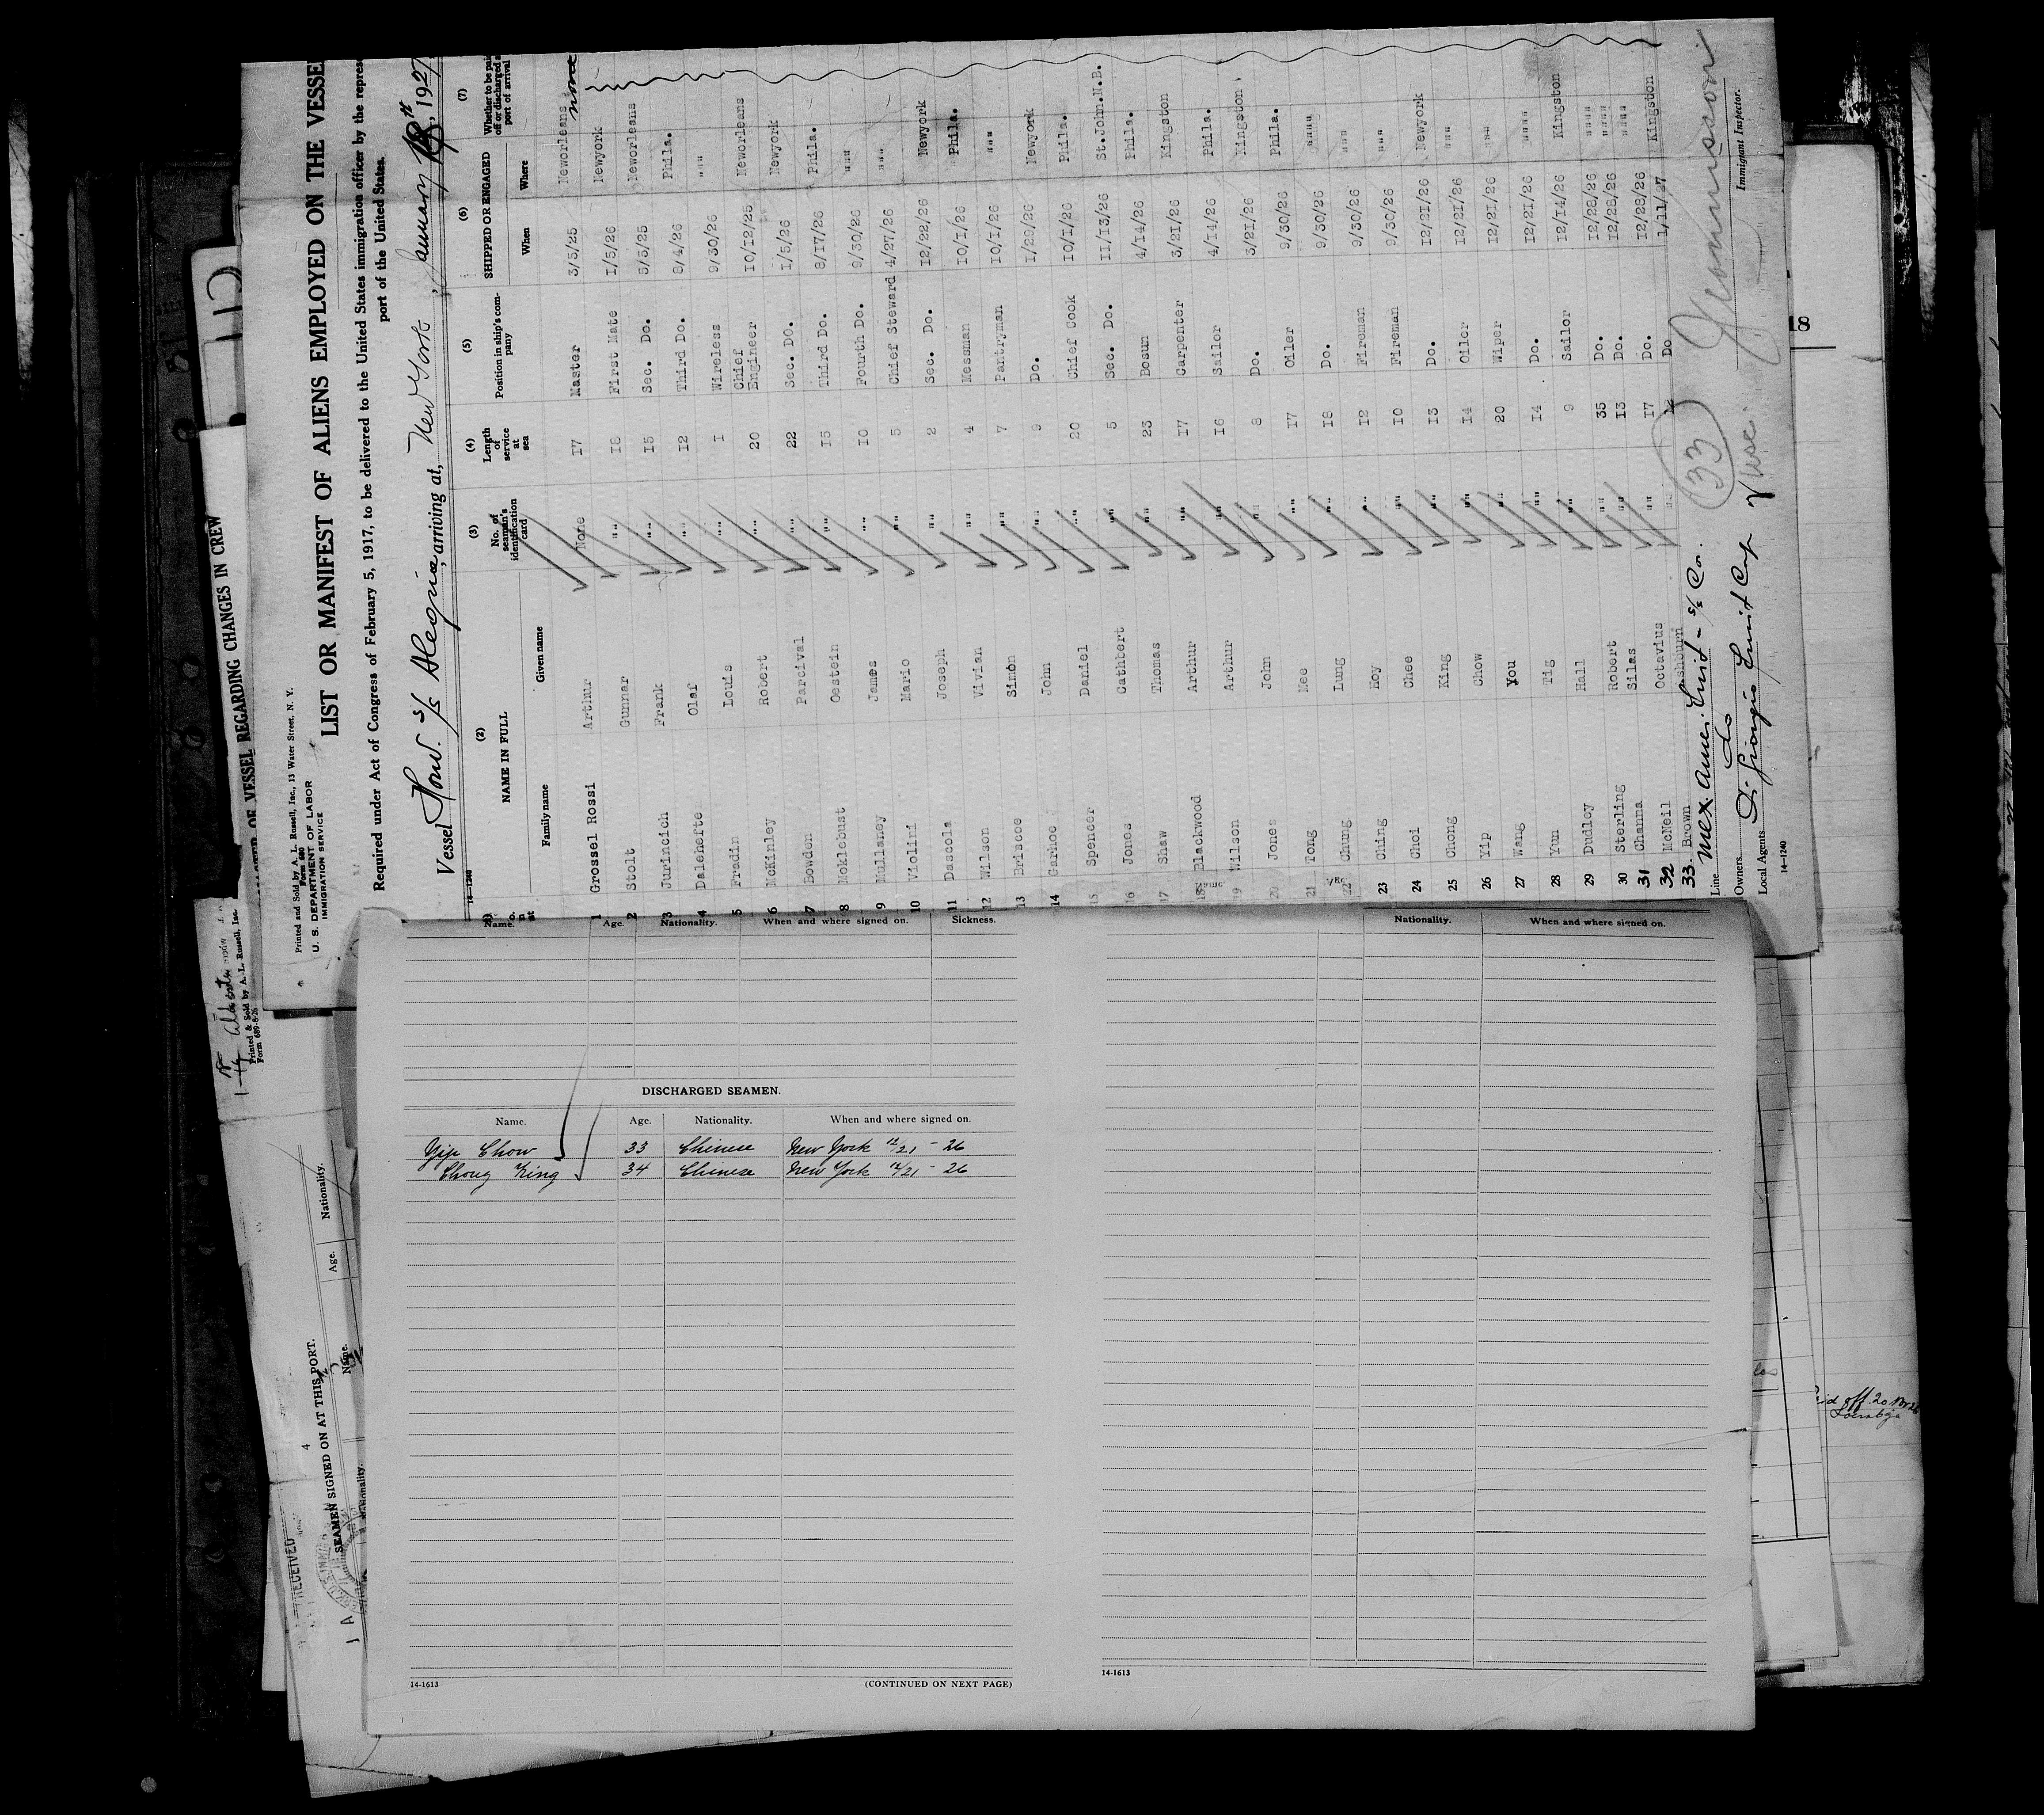 Printed and Sold by A. L. Russell, Inc., 13 Water Street, N. Y.
Form 680
U. S. DEPARTMENT OF LABOR
IMMIGRATION SERVICE
LIST OR MANIFEST OF ALIENS EMPLOYED ON THE VESSEL
Required under Act of Congress of February 5, 1917, to be delivered to the United States immigration officer by the repres
port of the United States.
Vessel Hond. S/S Alegria, arriving at, New York, January 18th, 1927
14-1240
(2) NAME IN FULL (3) No. of seaman's identification card (4) Length of service at sea (5) Position in ship's company (6) SHIPPED OR ENGAGED (7) Whether to be paid off or discharged at port of arrival
Family name Given name When Where
1 Grossel Rossi Arthur None 17 Master 3/5/25 Neworleans none
2 Stolt Gunnar "" 18 First Mate 1/5/26 Newyork
3 Jurincich Frank "" 15 Sec. Do. 5/5/25 Neworleans
4 Dalehefte Olaf "" 12 Third Do. 8/4/26 Phila.
5 Fradin Louis "" 1 Wireless 9/30/26 """
6 McKinley Robert "" 20 Chief Engineer 10/12/25 Neworleans
7 Bowden Parcival "" 22 Sec. DO. 1/5/26 Newyork
8 Moklebust Oestein "" 15 Third Do. 8/17/26 Phila.
9 Mullaney James "" 10 Fourth Do. 9/30/26 """
10 Violini Mario "" 5 Chief Steward 4/27/26 """
11 Dascola Joseph "" 2 Sec. Do. 12/22/26 Newyork
12 Wilson Vivian "" 4 Messman 10/1/26 Phila.
13 Briscoe Simon "" 7 Pantryman 10/1/26 """
14 Garhoe John "" 9 Do. 1/29/26 Newyork
15 Spencer Daniel "" 20 Chief Cook 10/1/26 Phila.
16 Jones Cathbert "" 5 Sec. Do. 11/13/26 St.John.N.B.
17 Shaw Thomas "" 23 Bosun 4/14/26 Phila.
18 Blackwood Arthur "" 17 Carpenter 3/21/26 Kingston
19 Wilson Arthur "" 16 Sailor 4/14/26 Phila.
20 Jones John "" 8 Do. 3/21/26 Kingston
21 Tong Mee "" 17 Oiler 9/30/26 Phila.
22 Chung Lung "" 18 Do. 9/30/26 """"
23 Ching Hoy "" 12 Fireman 9/30/26 """
24 Choi Chee "" 10 Fireman 9/30/26 """
25 Chong King "" 13 Do. 12/21/26 Newyork
26 Yip Chow "" 14 Oiler 12/21/26 """
27 Wang You "" 20 Wiper 12/21/26 """
28 Yun Tig "" 14 Do. 12/21/26 """"
29 Dudley Hall "" 9 Sailor 12/14/26 Kingston
30 Sterling Robert "" 35 Do. 12/28/26 """"
31 Channa Silas "" 13 Do. 12/28/26 """"
32 McNeil Octavius "" 17 Do. 12/28/26 """"
33. Brown Ashburn "" Do. 1/11/27 Kingston
33
Line Mex. Amer. Fruit - S/S Co.
Owners do
Local Agents Di Giorgio Fruit Corp
Immigrant Inspector.
14-1240
Name. Age. Nationality. When and where signed on. Sickness.
DISCHARGED SEAMEN.
Name. Age. Nationality. When and where signed on.
Yip Chow 33 Chinese New York 12/21 - 26
Chong King 34 Chinese New York 12/21 - 26
14-1613
(CONTINUED ON NEXT PAGE)
Nationality. When and where signed on.
14-1613
OF VESSEL REGARDING CHANGES IN CREW
Printed & Sold by A. L. Russell, Inc
Form 689-8-26
4
SEAMEN SIGNED ON AT THIS PORT.
Name. Age. Nationality.
Nationality.
RECEIVED
18